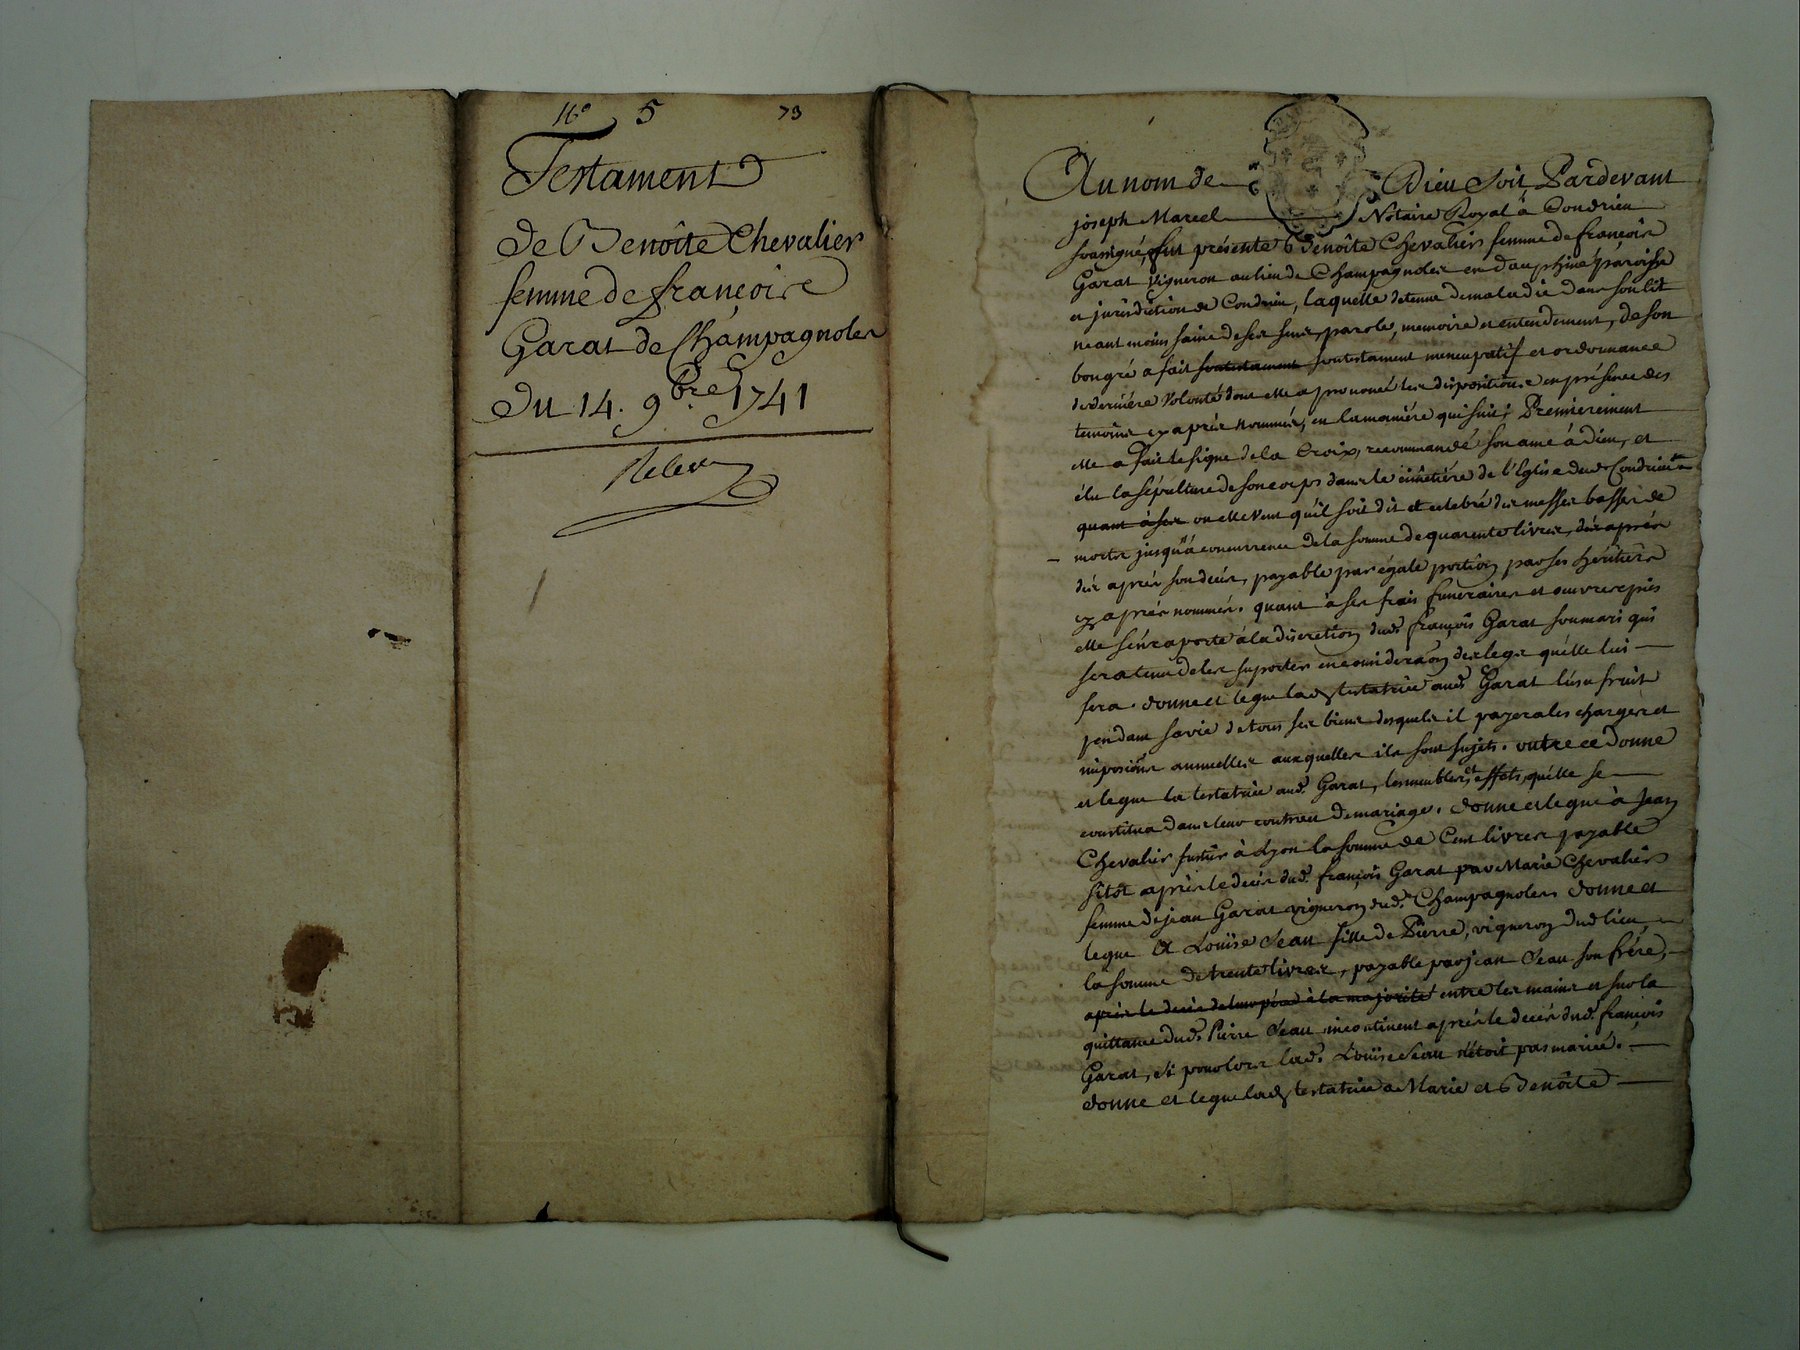 N.° 5 73
Testament
de Benoîte Chevalier
femme de françois
Garat de Champagnoles
du 14. 9bre 1741
Au nom de Dieu soit Pardevant
joseph Marcel Notaire Royal à Condrieu
soussigné, fut présente Benoîte Chevalier femme de françois
Garat vigneron au lieu de Champagnoles en dauphiné paroisse
et jurisdiction de Condrieu, laquelle detenue de maladie dans son lit
neant moins saine de ses sens, parole, memoire et entendement, de son
bongré a fait son testament son testament nuncupatif et ordonnance
de derniére volonté dont elle a prononcé les dispositions en présence des
temoins cy aprés nommés, en la maniére qui suit; Premierement
elle a fait le signe de la Croix, recommandé son ame à dieu, et
élu la sépulture de son corps dans le cimétiére de l'Eglise dud. Condrieu
quant à ses ou elle veut qu'il soit dit et celebré des messes basses de
morts jusqu'à concurrence de la somme de quarente livres, dès après
dès aprés son decés, payable par égale portion par ses héritiers
cy aprés nommés. quant à ses frais funeraires et œuvres pies
elle s'en raporte à la discretion dud. françois Garat son mari qui
sera tenu de les suporter en consideraõn des legs qu'elle lui
fera. donne et legue lad. testatrice aud. Garat l'usufruit
pendant sa vie de tous ses biens desquels il payera les charges et
imposiõns annuelles auxquelles ils sont sujets. outre ce donne
et legue la testatrice aud. Garat, les meubles et effets, qu'elle se
constitua dans leur contract de mariage. donne et legue à Jean
Chevalier à Lyon la somme de Cent livres payable
sitôt aprés le decés dud. françois Garat par Marie Chevalier
femme de jean Garat vigneron dud. Champagnoles donne et
legue A Loüise Seau fille de Pierre, vigneron dud lieu
la somme de trente livres, payable par jean Seau son frére,
aprés le decés de leur pére à la majorité entre les mains et sur la
quittance dud. Pierre Seau incontinent aprés le decés dud. françois
Garat, si pour lors lad. Loüise Seau n'étoit pas mariée.
donne et legue lad. testatrice a Marie et Benoîte